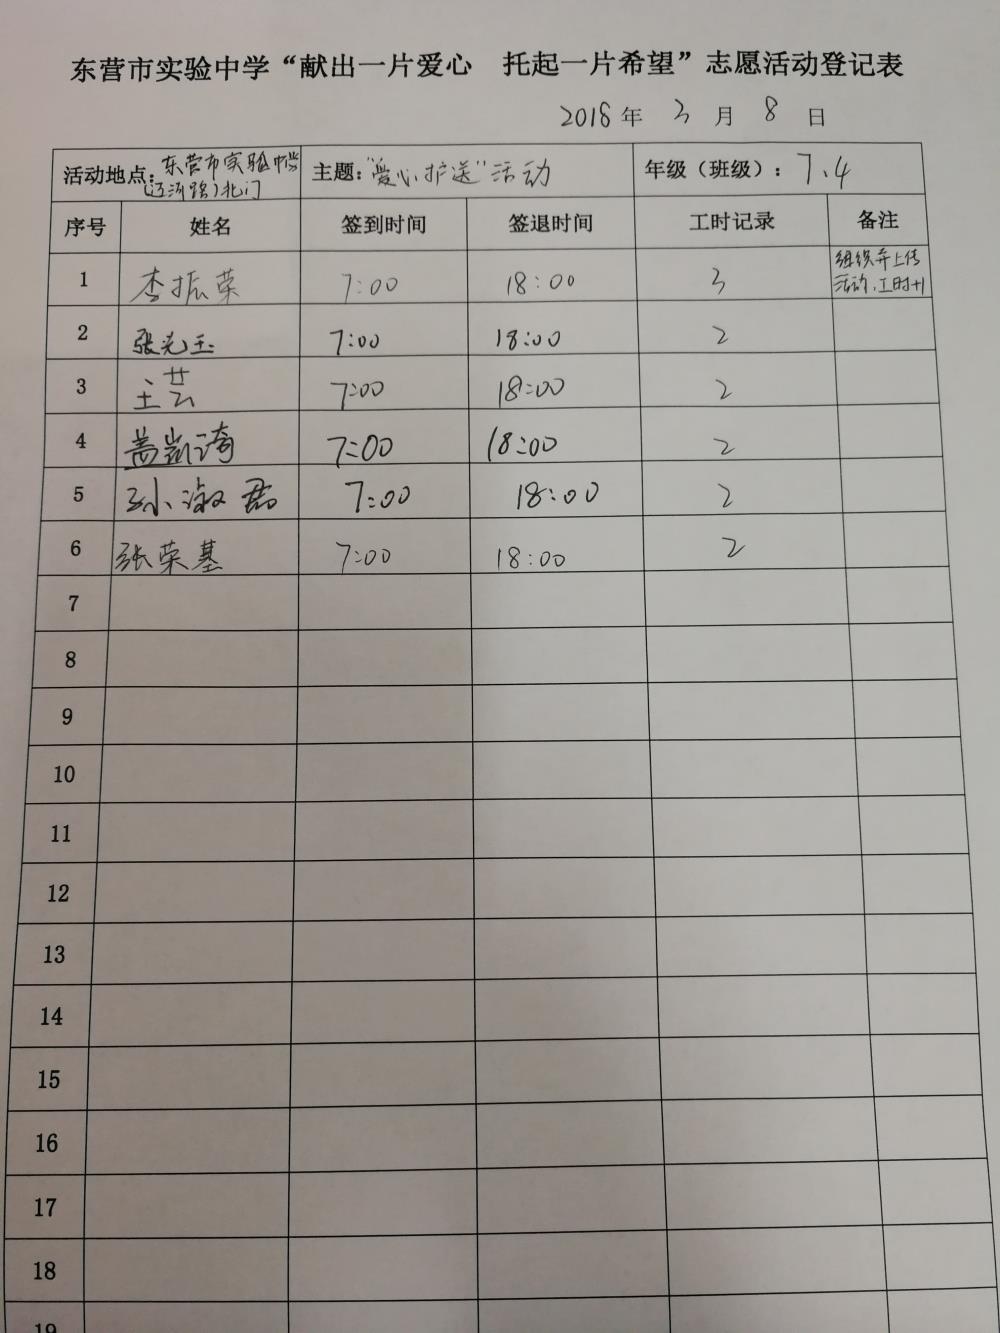 东营市实验中学“献出一片爱心 托起一片希望”志愿活动登记表
2018年 3 月 8 日
活动地点：东营市实验中学（辽河路）北门 主题：“爱心护送”活动 年级（班级）：7.4
序号 姓名 签到时间 签退时间 工时记录 备注
1 李振荣 7:00 18:00 3 组织并上传活动，工时+1
2 张光玉 7:00 18:00 2
3 王芸 7:00 18:00 2
4 盖凯琦 7:00 18:00 2
5 孙淑君 7:00 18:00 2
6 张荣基 7:00 18:00 2
7
8
9
10
11
12
13
14
15
16
17
18
19